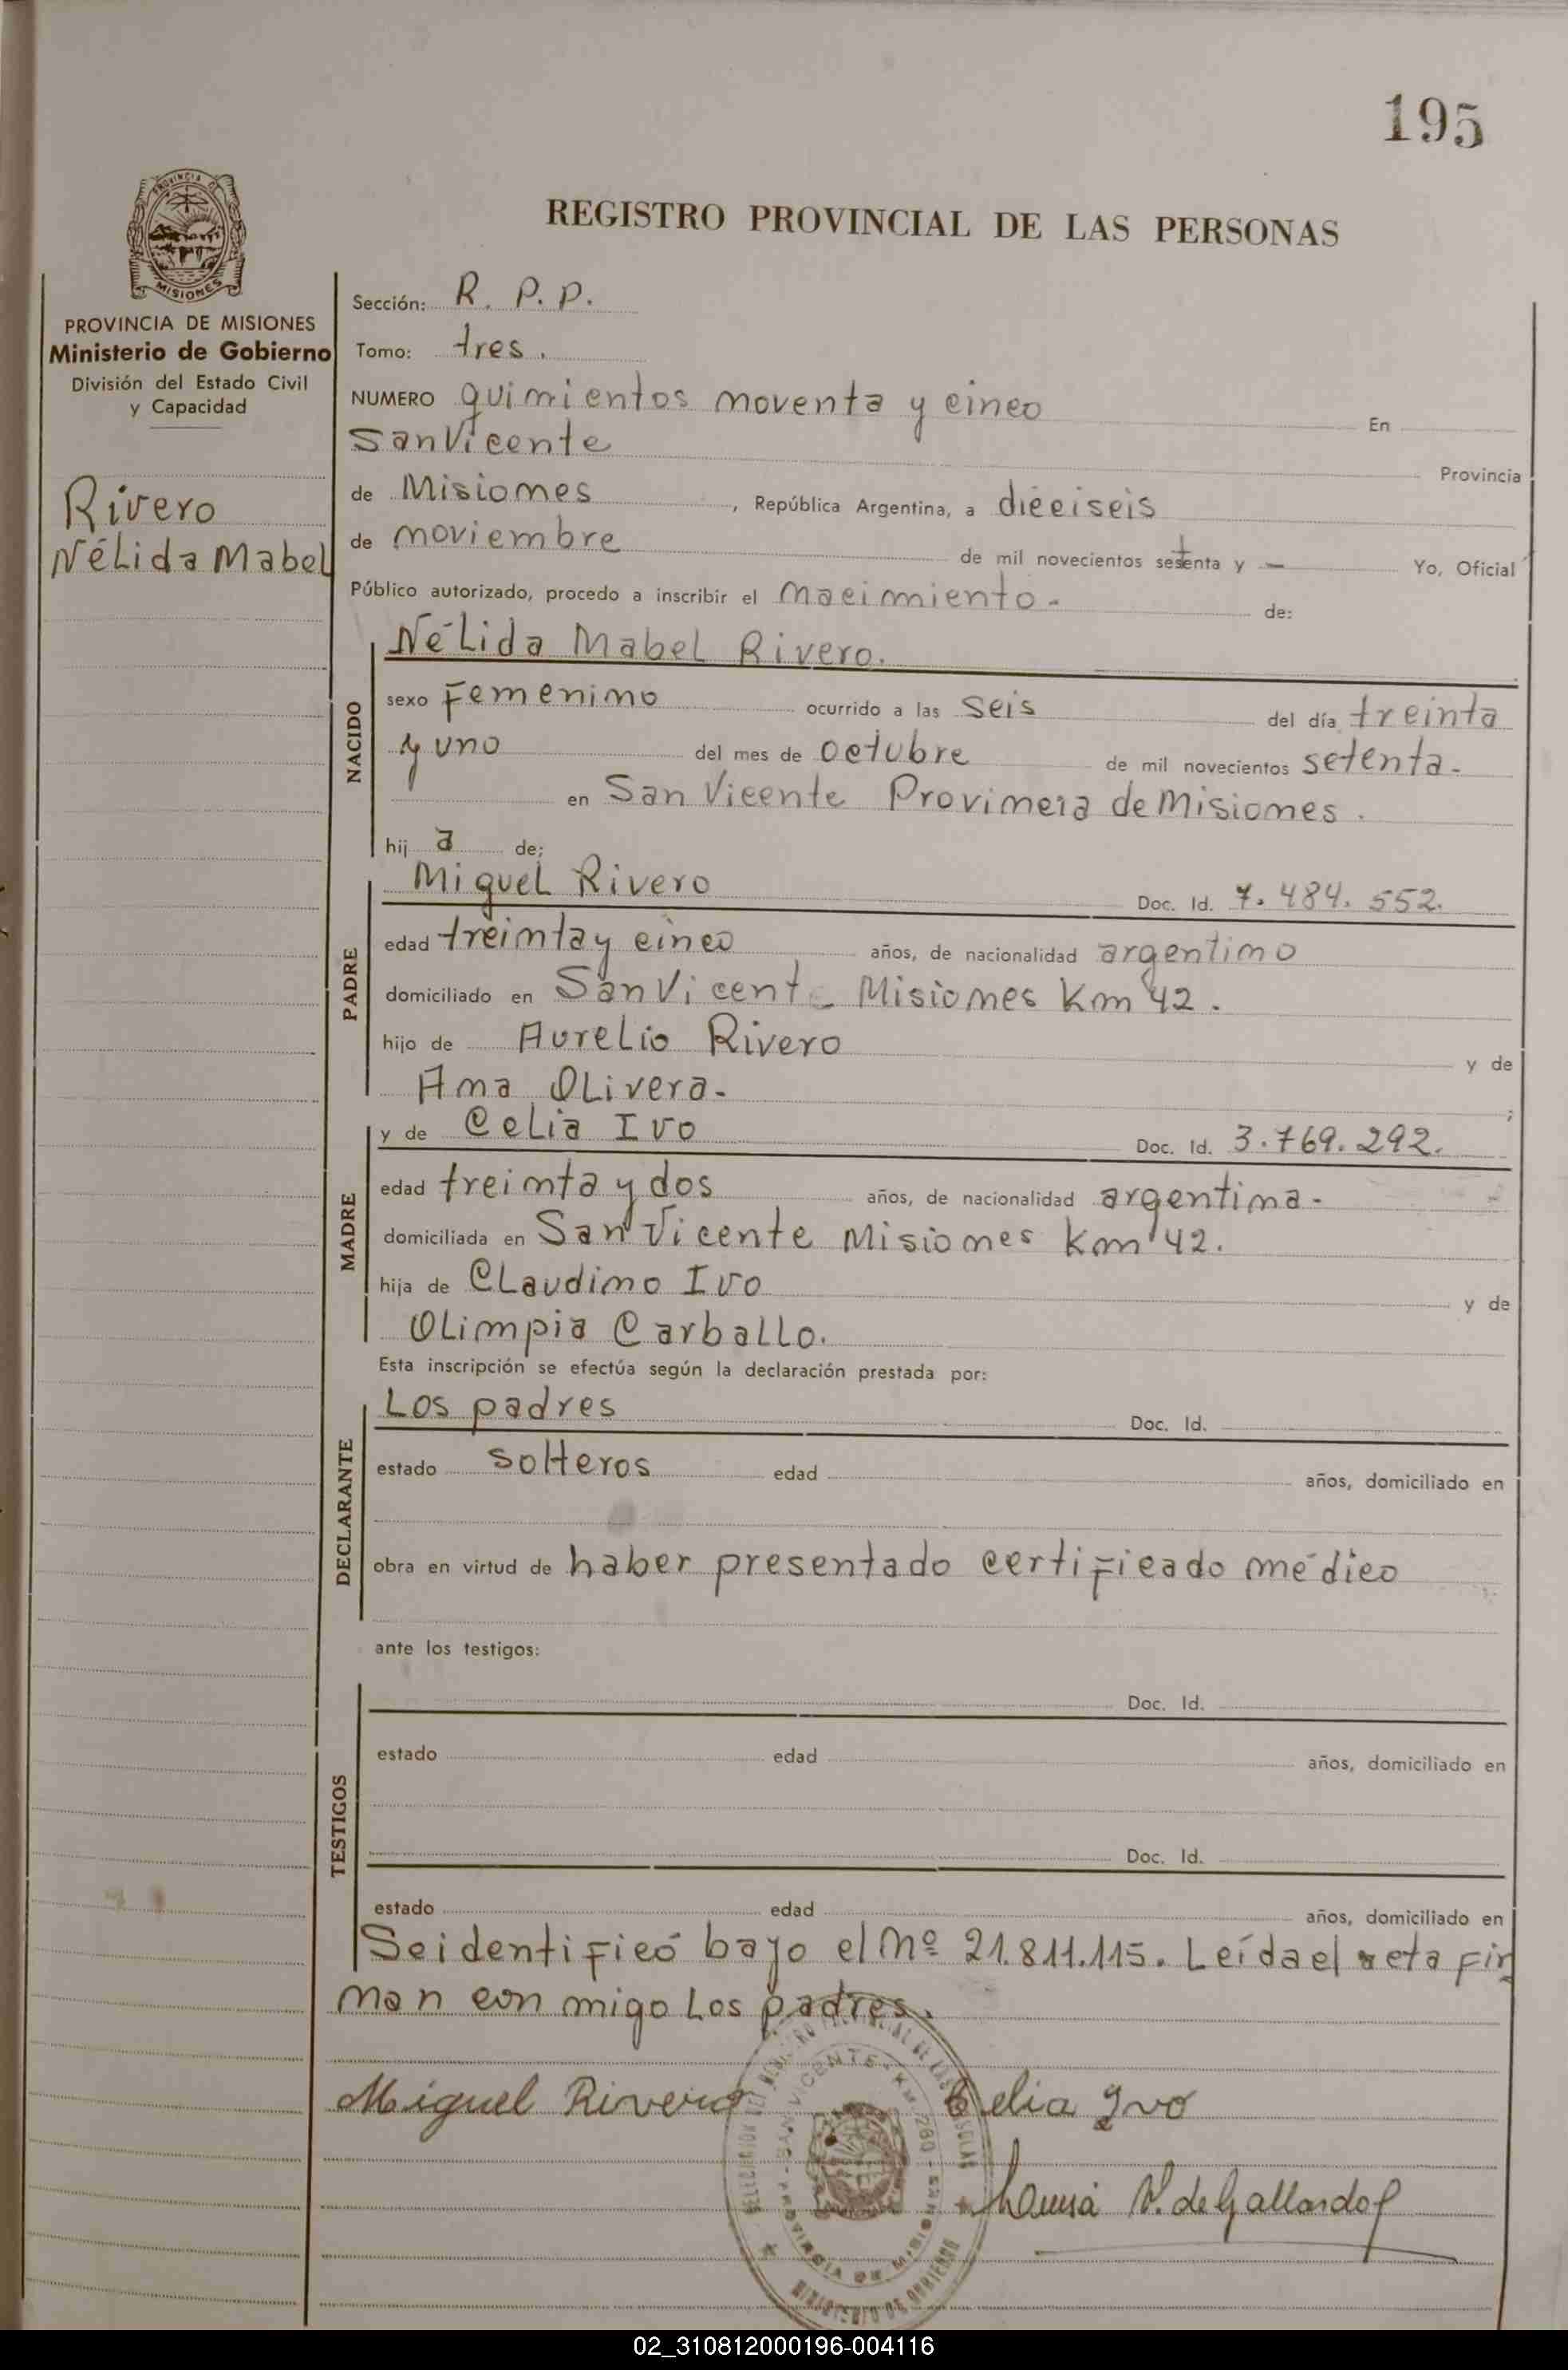 195
PROVINCIA DE MISIONES
REGISTRO PROVINCIAL DE LAS PERSONAS
PROVINCIA DE MISIONES
Ministerio de Gobierno
División del Estado Civil
y Capacidad
Rivero
Nélida Mabel
Sección: R. P. P.
Tomo: tres.
NUMERO quinientos noventa y cinco En
San Vicente Provincia
de Misiones, República Argentina, a dieciseis
de noviembre de mil novecientos setenta y — Yo, Oficial
Público autorizado, procedo a inscribir el nacimiento- de:
NACIDO
Nélida Mabel Rivero.
sexo Femenino ocurrido a las seis del día treinta
y uno del mes de octubre de mil novecientos setenta-
en San Vicente Provincia de Misiones.
hij a de:
PADRE
Miguel Rivero Doc. Id. 7.484.552.
edad treinta y cinco años, de nacionalidad argentino
domiciliado en San Vicent_ Misiones Km 42.
hijo de Aurelio Rivero y de
Ana Olivera- ;
MADRE
y de Celia Ivo Doc. Id. 3.769.292.
edad treinta y dos años, de nacionalidad argentina-
domiciliada en San Vicente Misiones Km 42.
hija de Claudino Ivo y de
Olimpia Carballo.
Esta inscripción se efectúa según la declaración prestada por:
DECLARANTE
Los padres Doc. Id.
estado solteros edad años, domiciliado en
obra en virtud de haber presentado certificado médico
ante los testigos:
TESTIGOS
Doc. Id.
estado edad años, domiciliado en
Doc. Id.
estado edad años, domiciliado en
Se identificó bajo el Nº 21.811.115. Leída el acta fir
man con migo los padres.
Miguel Rivero Celia Ivo
V. de Gallardo
SAN VICENTE
PROVINCIA DE MISIONES
MINISTERIO DE GOBIERNO
02_310812000196-004116